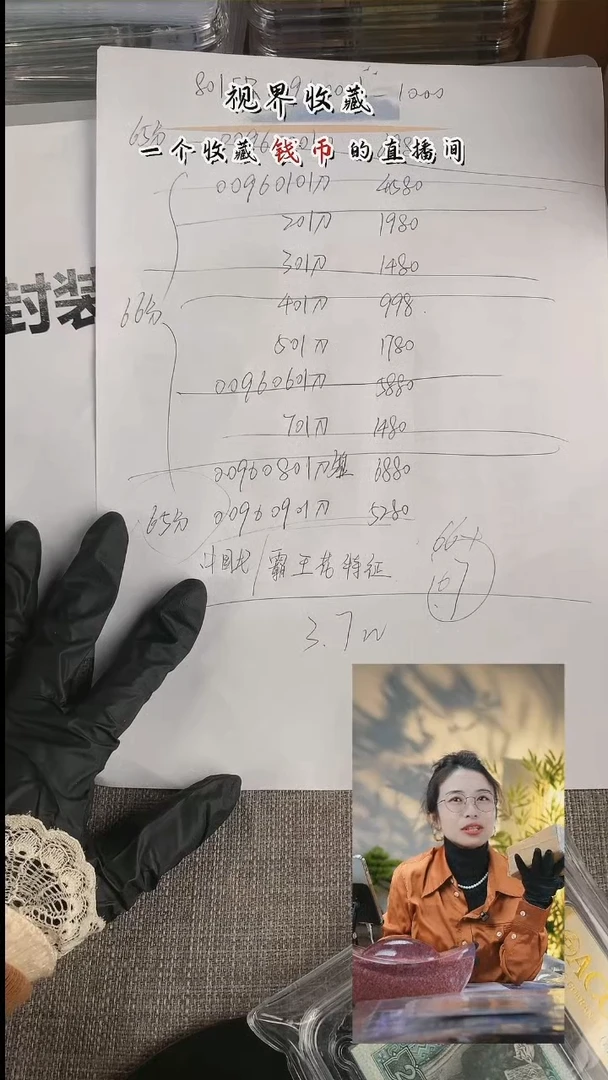 视界收藏
1000
65分
一个收藏钱币的直播间
00960101刀 4580
201刀 1980
301刀 1480
66分
401刀 998.
501刀 1780
00960601刀 5880
701刀 1480
00960801刀 6880
65分
00960901刀 5280
66+
霸王杏特征
3.7w
封装